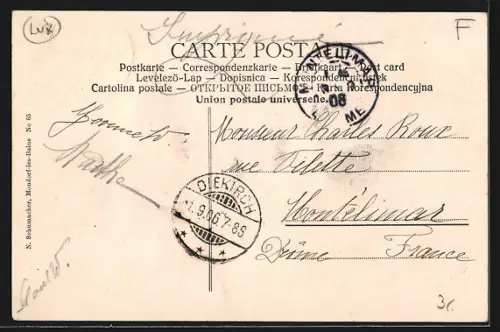 LUX
F
Imprimé
CARTE POSTALE
Postkarte — Correspondenzkarte — Briefkaart — Post card
Levelező-Lap — Dopisnica — Korespondenční lístek
Cartolina postale — ОТКРЫТОЕ ПИСЬМО — Karta Korespondencyjna
Union postale universelle.
MONTELIMAR
06
ME
Monsieur Charles Roux
rue
Montélimar
Drôme France
DIEKIRCH
1.9.06.7-8S
N. Schumacher, Mondorf-les-Bains No 65
3c